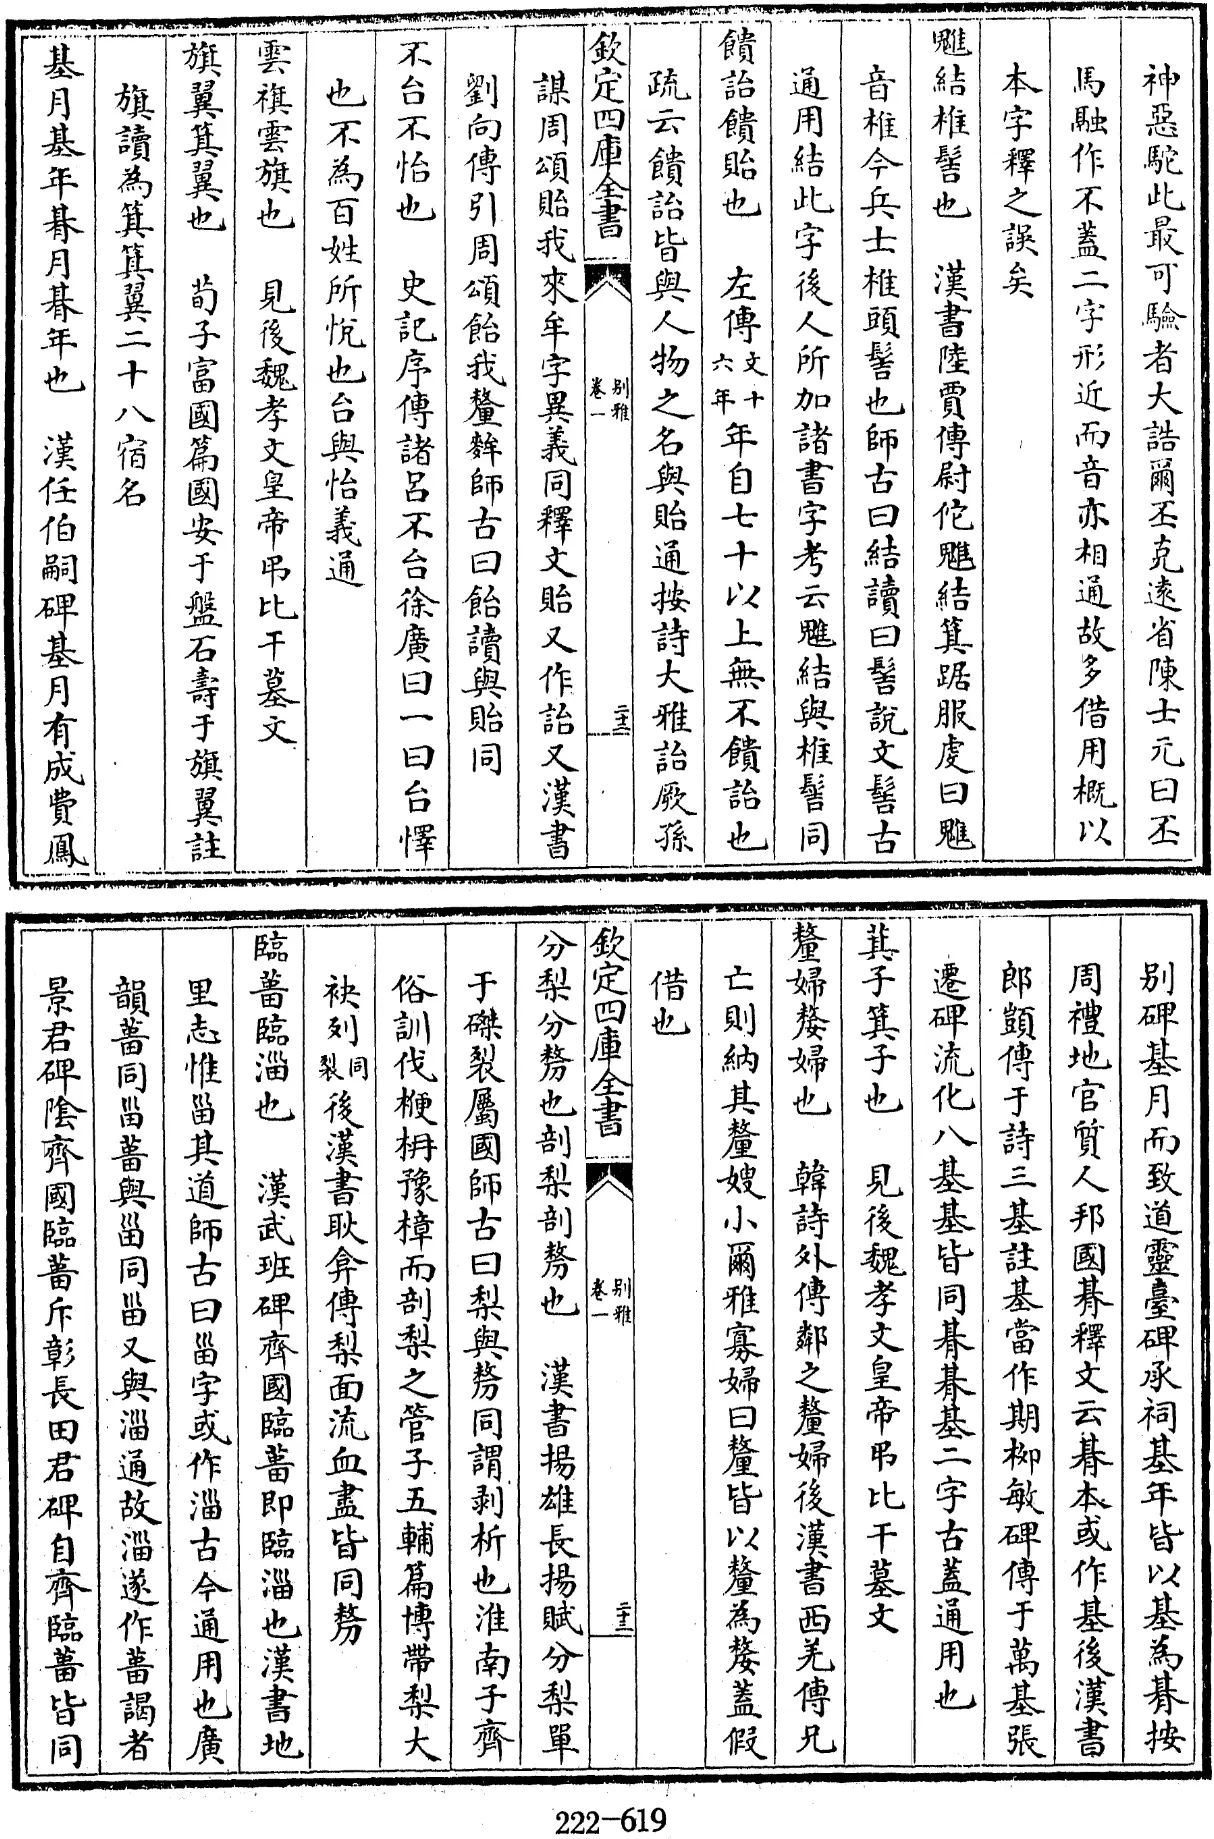 神惡駝此最可驗者大誥爾丕克遠省陳士元曰丕
馬融作不蓋二字形近而音亦相通故多借用概以
本字釋之誤矣
魋結椎髻也　漢書陸賈傳尉佗魋結箕踞服虔曰魋
音椎今兵士椎頭髻也師古曰結讀曰髻說文髻古
通用結此字後人所加諸書字考云魋結與椎髻同
饋詒饋貽也　左傳文十六年年自七十以上無不饋詒也
疏云饋詒皆與人物之名與貽通按詩大雅詒厥孫
欽定四庫全書　別雅卷一　二十三
謀周頌貽我來牟字異義同釋文貽又作詒又漢書
劉向傳引周頌飴我釐麰師古曰飴讀與貽同
不台不怡也　史記序傳諸呂不台徐廣曰一曰台懌
也不為百姓所悅也台與怡義通
雲祺雲旗也　見後魏孝文皇帝弔比干墓文
旗翼箕翼也　荀子富國篇國安于盤石壽于旗翼註
旗讀為箕箕翼二十八宿名
基月基年朞月朞年也　漢任伯嗣碑基月有成費鳳
別碑基月而致道靈臺碑承祠基年皆以基為朞按
周禮地官質人邦國朞釋文云朞本或作基後漢書
郎顗傳于詩三基註基當作期柳敏碑傳于萬基張
遷碑流化八基基皆同朞朞基二字古蓋通用也
萁子箕子也　見後魏孝文皇帝弔比干墓文
釐婦嫠婦也　韓詩外傳鄰之釐婦後漢書西羌傳兄
亡則納其釐嫂小爾雅寡婦曰釐皆以釐為嫠蓋假
借也
欽定四庫全書　別雅卷一　二十三
分梨分剺也剖梨剖剺也　漢書揚雄長揚賦分梨單
于磔裂屬國師古曰梨與剺同謂剥析也淮南子齊
俗訓伐楩枏豫樟而剖梨之管子五輔篇博帶梨大
袂列同裂後漢書耿弇傳梨面流血盡皆同剺
臨菑臨淄也　漢武班碑齊國臨菑即臨淄也漢書地
里志惟甾其道師古曰甾字或作淄古今通用也廣
韻菑同甾菑與甾同甾又與淄通故淄遂作菑謁者
景君碑陰齊國臨菑斥彰長田君碑自齊臨菑皆同
222-619